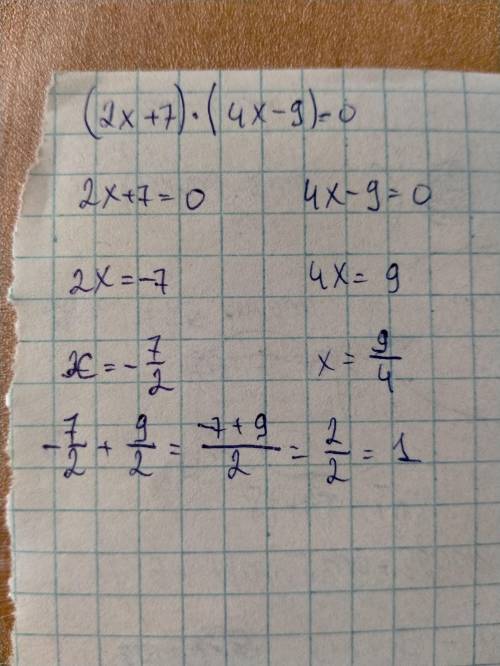 (2x+7)·(4x-9)=0
2x+7=0 4x-9=0
2x=-7 4x=9
x=-7/2 x=9/4
-7/2+9/2=(-7+9)/2=2/2=1